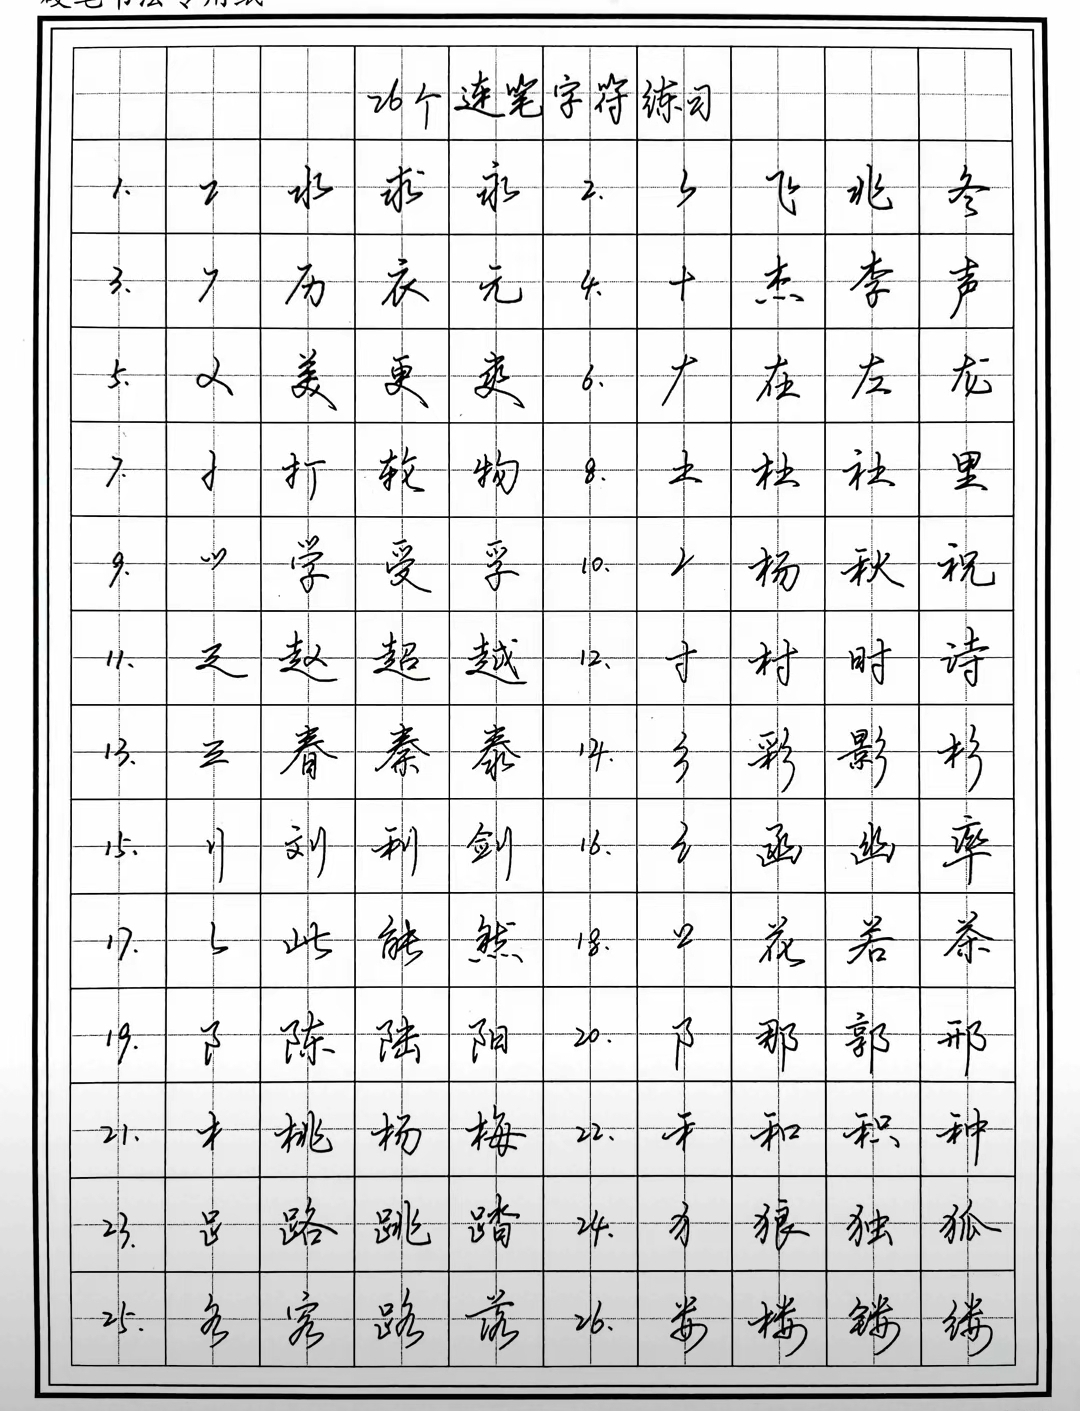 硬笔书法专用纸
26个连笔字符练习
1. 水 求 永 2. 飞 兆 冬
3. 历 衣 元 4. 十 杰 李 声
5. 美 更 爽 6. 在 左 龙
7. 扌 打 软 物 8. 土 杜 社 里
9. 学 受 孚 10. 杨 秋 祝
11. 赵 超 越 12. 寸 村 时 诗
13. 春 秦 泰 14. 彡 彩 影 杉
15. 刂 刘 利 剑 16. 函 幽 率
17. 此 能 然 18. 花 若 茶
19. 阝 陈 陆 阳 20. 阝 那 郭 邢
21. 木 桃 杨 梅 22. 禾 和 积 种
23. 𧾷 路 跳 踏 24. 犭 狼 独 狐
25. 各 客 路 落 26. 娄 楼 镂 缕